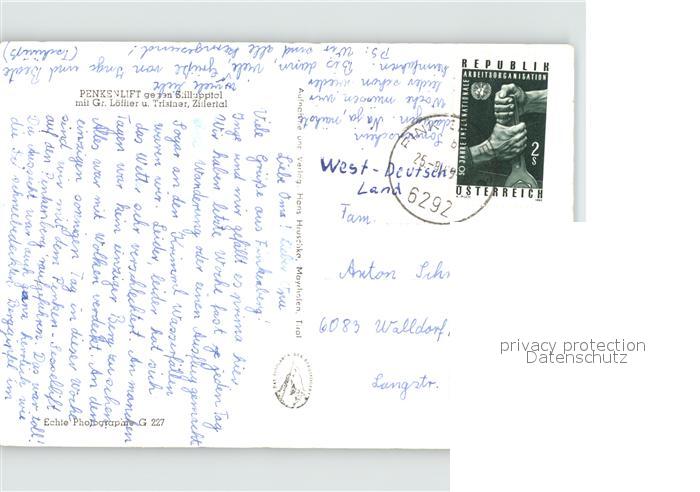 PENKENLIFT gegen Stilluptal
mit Gr. Löffler u. Tristner, Zillertal
Liebe Oma! Lieber
Viele Grüße aus Finkenberg!
Inge und mir gefällt es prima hier.
Wir haben letzte Woche fast jeden Tag
eine Wanderung oder einen Ausflug gemacht
Sogar an den Krimml Wasserfällen
waren wir. Leider, leider hat sich
das Wetter sehr verschlechtert. An manchen
Tagen war kein einziger Berg zu sehen
Alles war mit Wolken verdeckt. An dem
einzigen sonnigen Tag in dieser Woche
sind wir mit dem Penken-Sessellift
auf den Penkenberg raufgefahren. Das war toll!
Die Aussicht war auch ganz herrlich wie
die schneebedeckten Berggipfel in
Sonnenschein
Na ja nächste
Woche müssen wir
leider schon wieder
heimfahren. Bis dann, viele
viele Grüße von Inge und Beate
PS: Wir sind alle kerngesund!
Echte Photographie G 227
Aufnahme und Verlag: Hans Hruschka, Mayrhofen, Tirol
REPUBLIK
50 JAHRE INTERNATIONALE
ARBEITSORGANISATION
2
S
ÖSTERREICH
6292
West-Deutsch
Land
Fam.
Anton Sch
6083 Walldorf,
Langstr.
privacy protection
Datenschutz